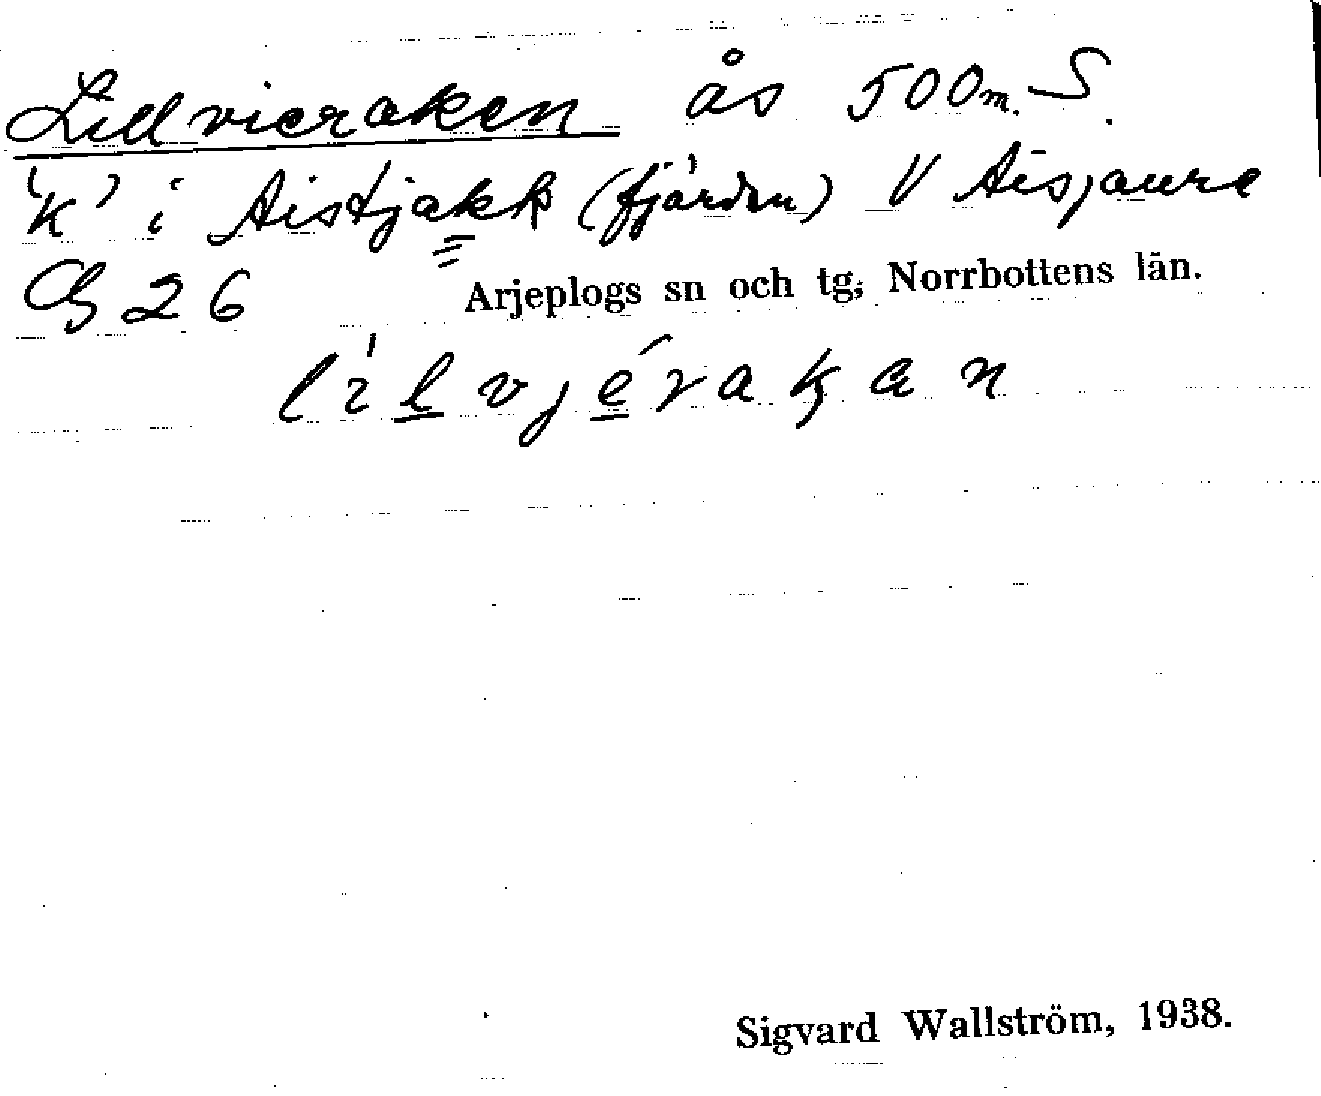 Lillvieraken ås 500 m. S.
'k' i Aistjakk (fjärden) V Aisjaure
26 Arjeplogs sn och tg, Norrbottens län.
lìlvjérakan
Sigvard Wallström, 1938.